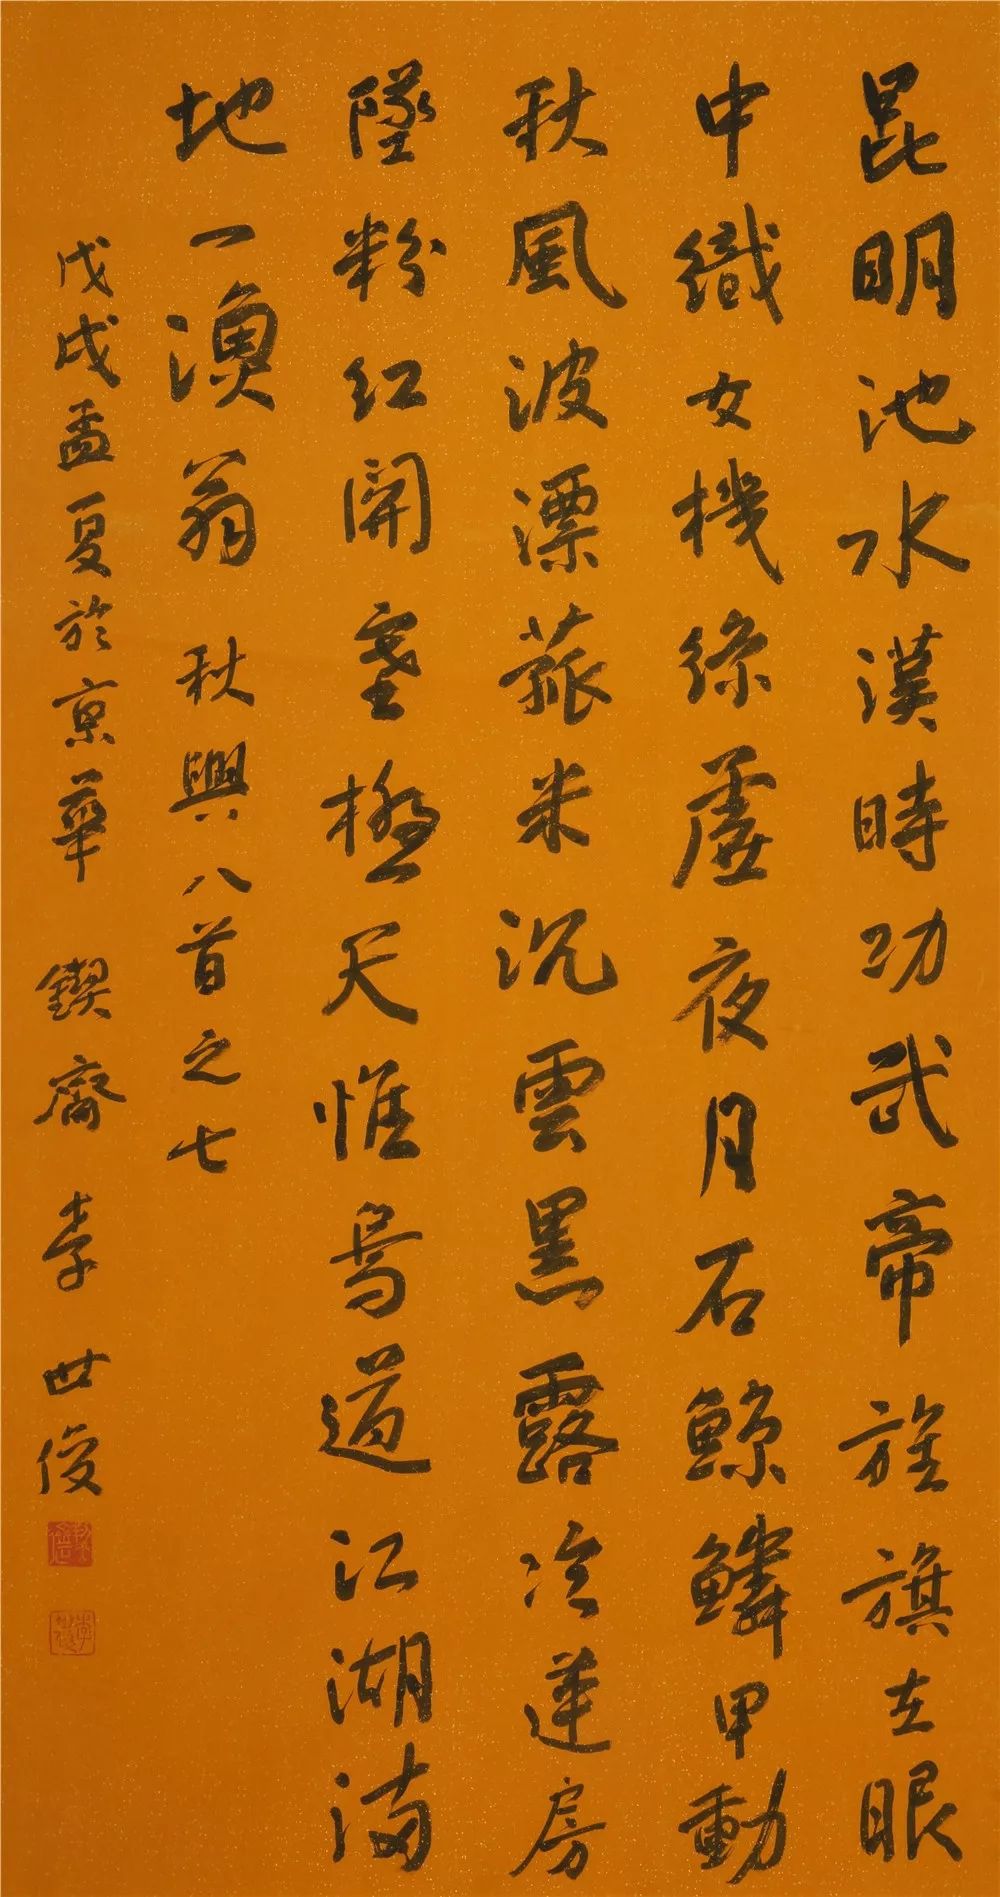 昆明池水漢時功武帝旌旗在眼
中織女機絲虛夜月石鯨鱗甲動
秋風波漂菰米沉雲黑露冷蓮房
墜粉紅關塞極天惟鳥道江湖滿
地一漁翁 秋興八首之七
戊戌孟夏於京華 鍥齋 李世俊